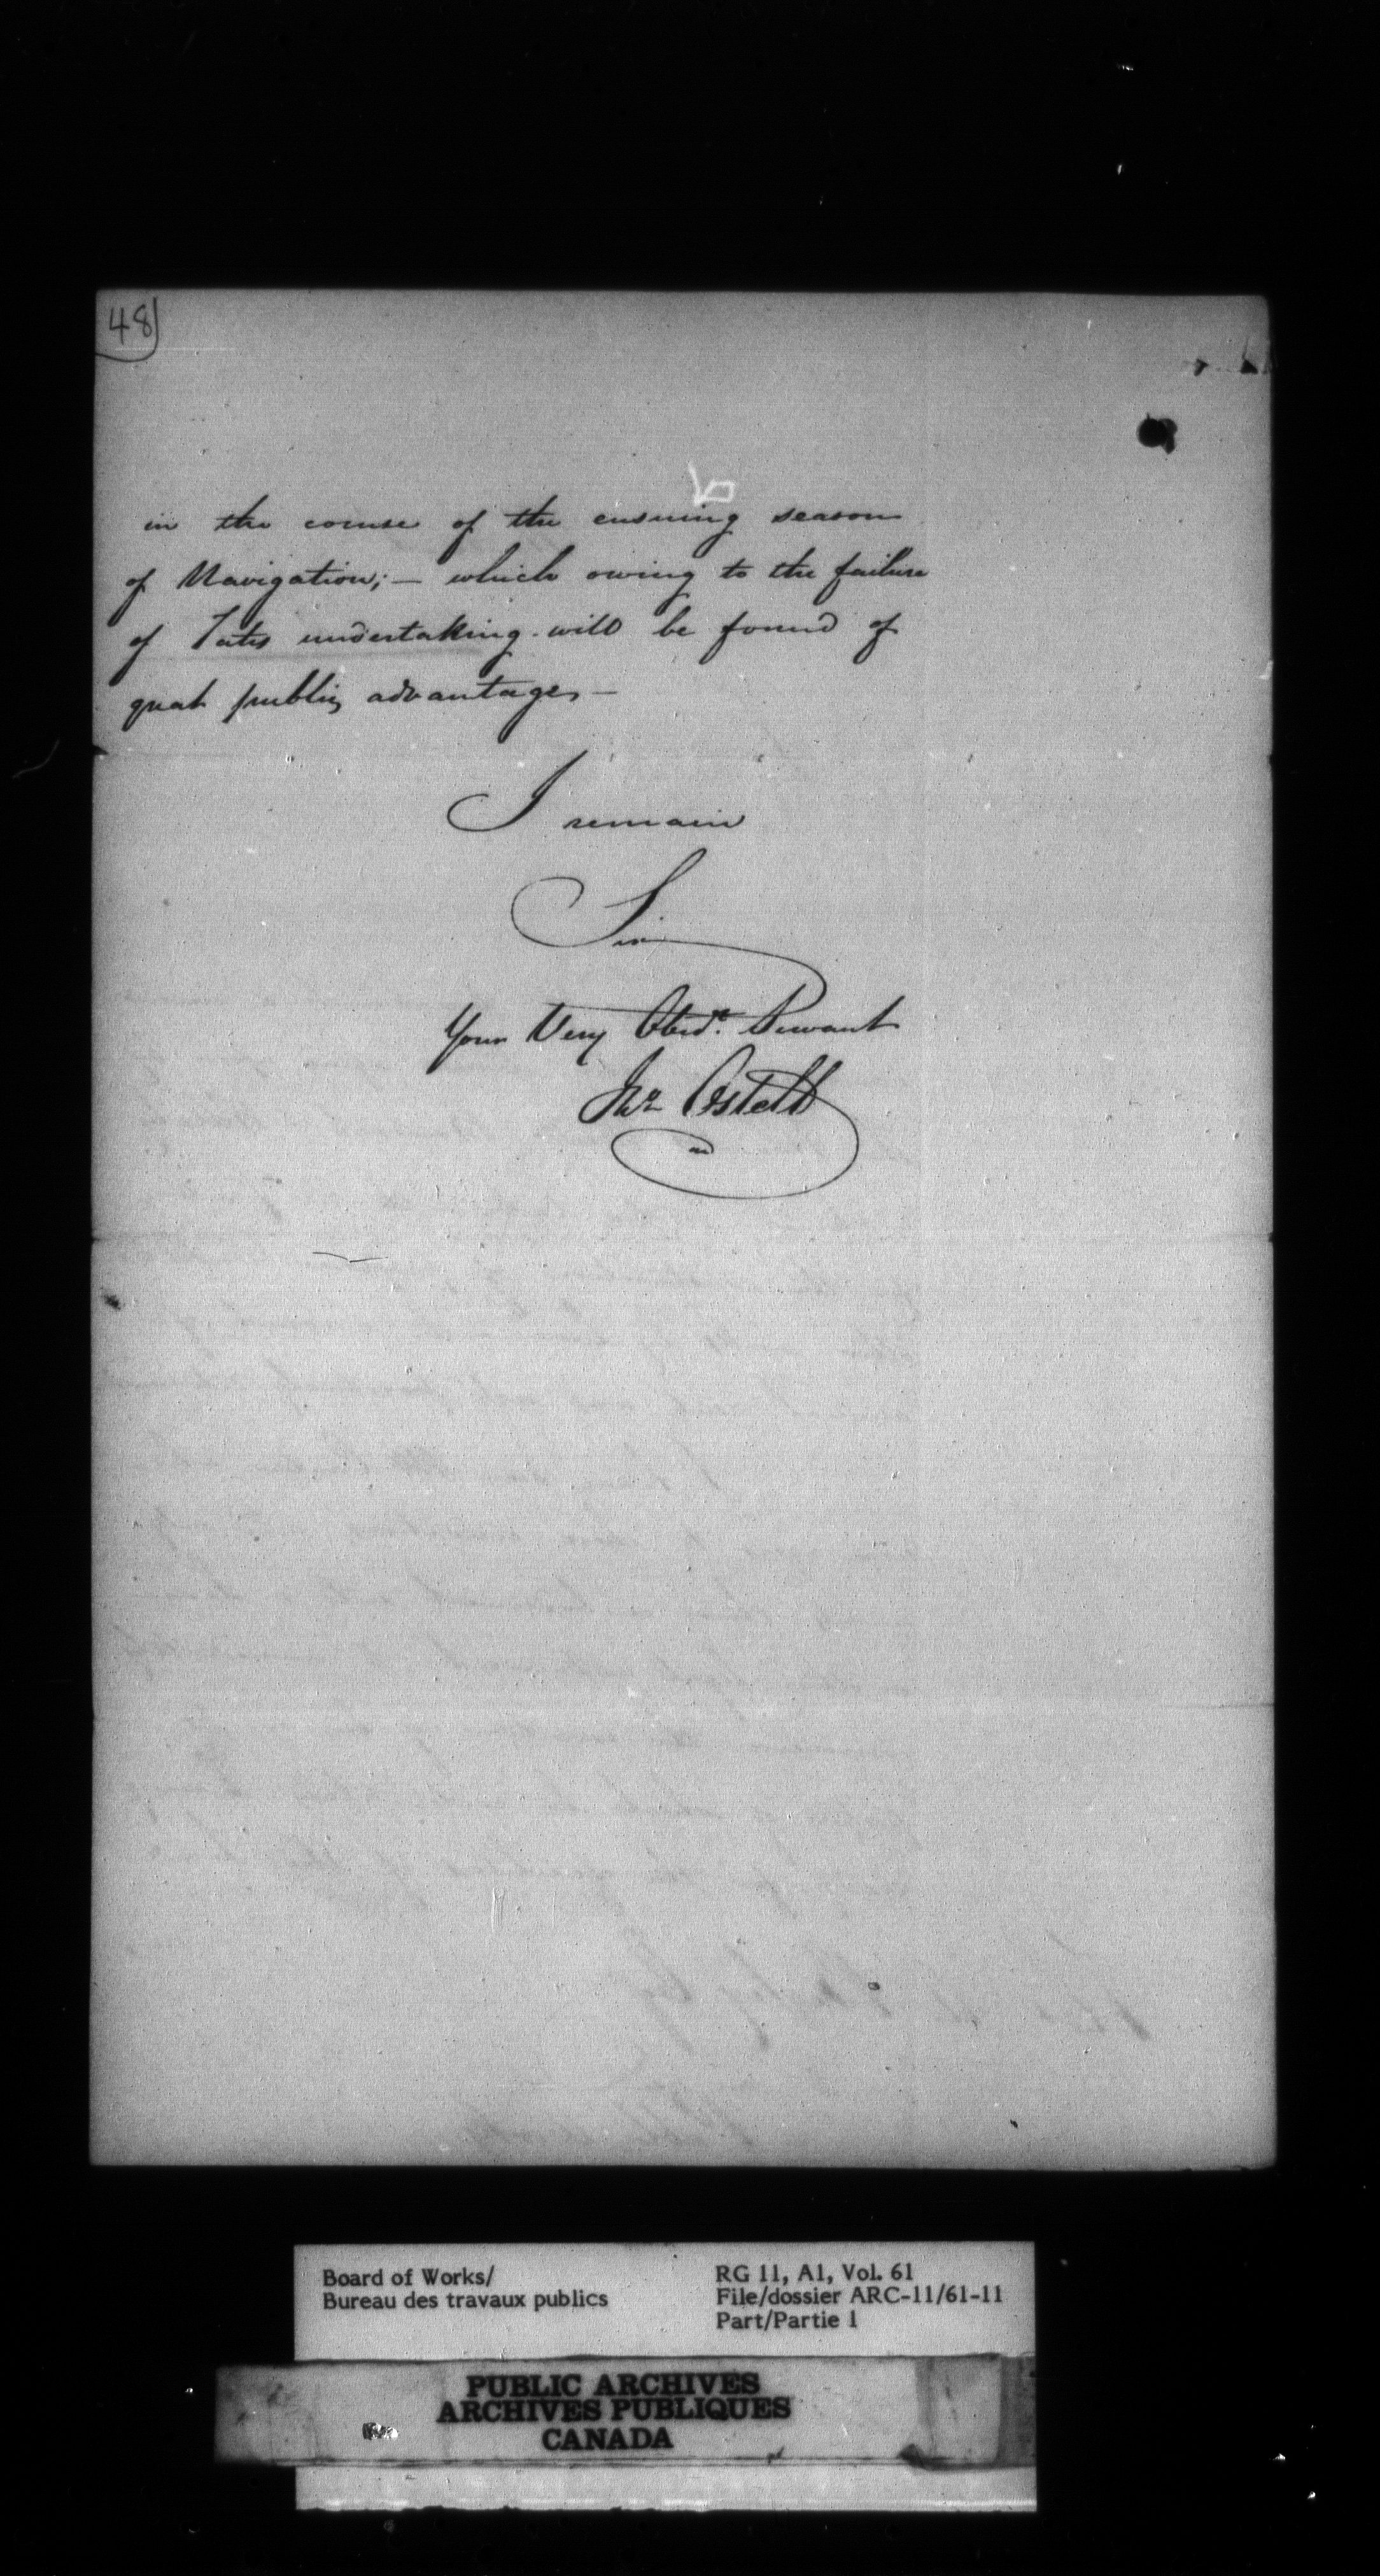 48
in the course of the ensuing season
of Navigation; — which owing to the failure
of Tates undertaking will be found of
great public advantage, —
I remain
Sir
Your Very Obed.t Servant
Jno Ostell
Board of Works/
Bureau des travaux publics
RG 11, A1, Vol. 61
File/dossier ARC-11/61-11
Part/Partie 1
PUBLIC ARCHIVES
ARCHIVES PUBLIQUES
CANADA